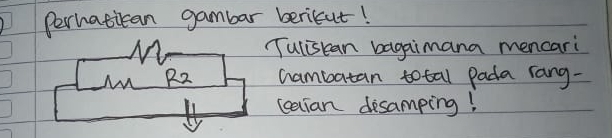 Perhatikan gambar berikut!
Tuliskan bagaimana mencari
R2
hambatan total pada rang-
kaian disamping!